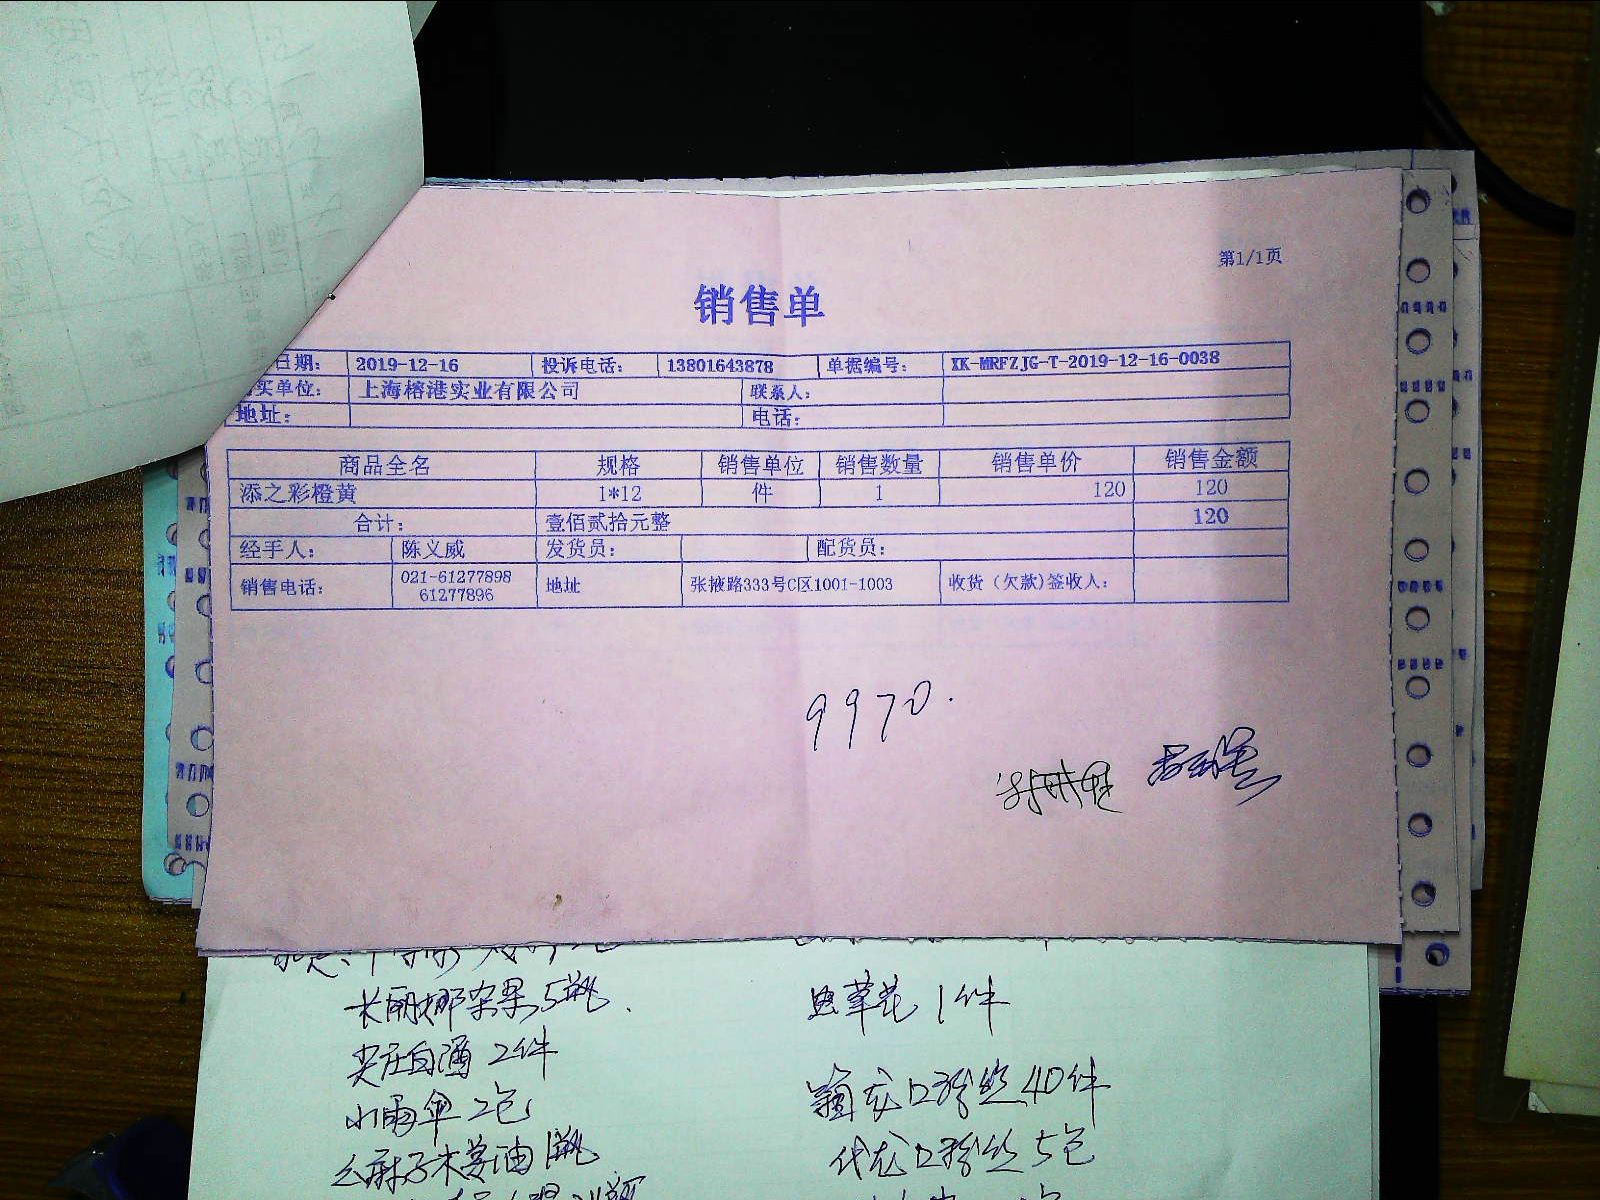 第1/1页
销售单
日期： 2019-12-16 投诉电话： 13801643878 单据编号： XK-MRFZJG-T-2019-12-16-0038
买单位： 上海榕港实业有限公司 联系人：
地址： 电话：
商品全名 规格 销售单位 销售数量 销售单价 销售金额
添之彩橙黄 1*12 件 1 120 120
合计： 壹佰贰拾元整 120
经手人： 陈义威 发货员： 配货员：
销售电话： 021-61277898 61277896 地址 张掖路333号C区1001-1003 收货（欠款)签收人：
9970.
长丽娜杂果5瓶.
虫草花1件
尖庄白酒2件
龙口粉丝40件
小雨伞2包
代龙口粉丝5包
么麻子木姜油1瓶